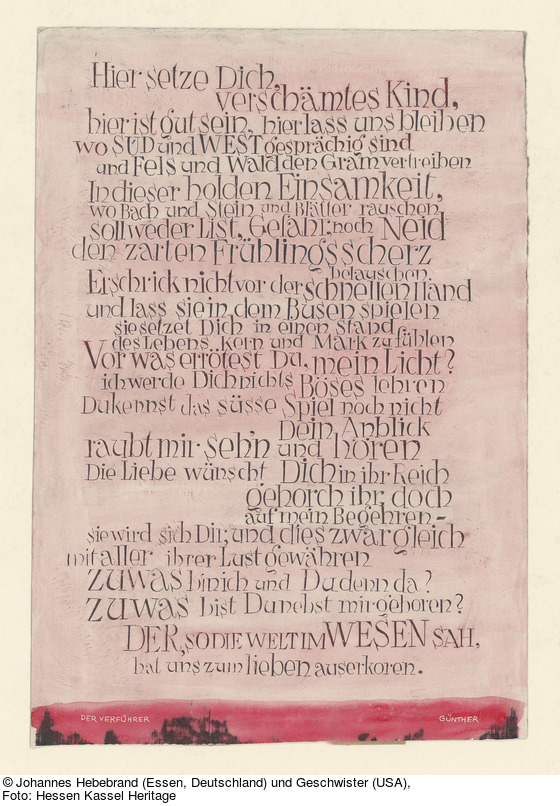 Hier setze Dich,
verschämtes Kind,
hier ist gut sein, hier lass uns bleiben
wo SÜD und WEST gesprächig sind
und Fels und Wald den Gram vertreiben
In dieser holden Einsamkeit,
wo Bach und Stein und Blätter rauschen
soll weder List, Gefahr, noch Neid
den zarten Frühlingsscherz
belauschen.
Erschrick nicht vor der schnellen Hand
und lass sie in dem Busen spielen
sie setzet Dich in einen Stand
des Lebens Kern und Mark zu fühlen
Vor was errötest Du, mein Licht?
ich werde Dich nichts Böses lehren
Du kennst das süsse Spiel noch nicht
Dein Anblick
raubt mir seh'n und hören
Die Liebe wünscht Dich in ihr Reich
gehorch ihr doch
auf mein Begehren -
sie wird sich Dir, und dies zwar gleich
mit aller ihrer Lust gewähren
ZU WAS bin ich und Du denn da?
ZU WAS bist Du nebst mir geboren?
DER, SO DIE WELT IM WESEN SAH,
hat uns zum lieben auserkoren.
DER VERFÜHRER GÜNTHER
© Johannes Hebebrand (Essen, Deutschland) und Geschwister (USA),
Foto: Hessen Kassel Heritage